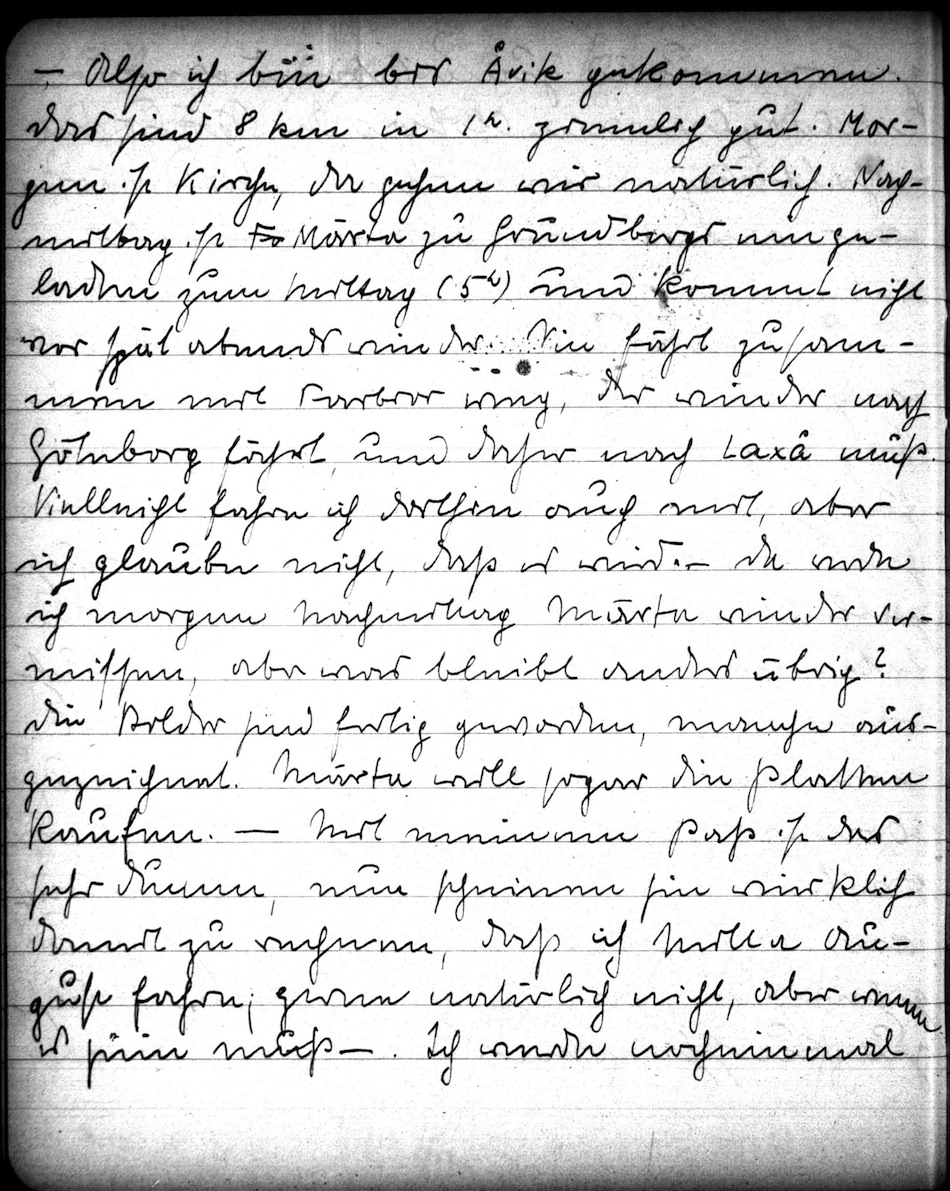 – Also ich bin bis Åvik gekommen.
Das sind 8 km in 1h. ziemlich gut. Mor-
gen ist Kirche, da gehen wir natürlich. Nach-
mittag ist Märta zu Grundbergs einge-
laden zum Mittag (5h) und kommt nicht
vor spät abends wieder. Sie fährt zusam-
men mit Farbror weg, der wieder nach
Göteborg fährt, und daher nach Laxå muß.
Vielleicht fahre ich dorthin auch mit, aber
ich glaube nicht, daß es wird. – Da werde
ich morgen Nachmittag Märta wieder ver-
missen, aber was bleibt anders übrig?
Die Bilder sind fertig geworden, manche aus-
gezeichnet. Märta will sogar die Platten
kaufen. — Mit meinem Paß ist das
sehr dumm, nun scheinen sie wirklich
damit zu rechnen, daß ich Mitte Au-
gust fahre; gerne natürlich nicht, aber wenn
es sein muß—. Ich werde nocheinmal